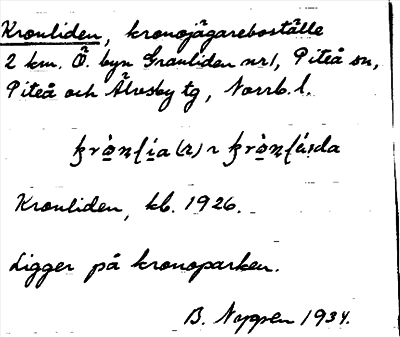 Kronliden, kronojägareboställe
2 km. Ö. byn Granliden nr 1, Piteå sn,
Piteå och Älvsby tg, Norrb. l.
Kronliden, kb. 1926.
Ligger på kronoparken.
B. 1934.